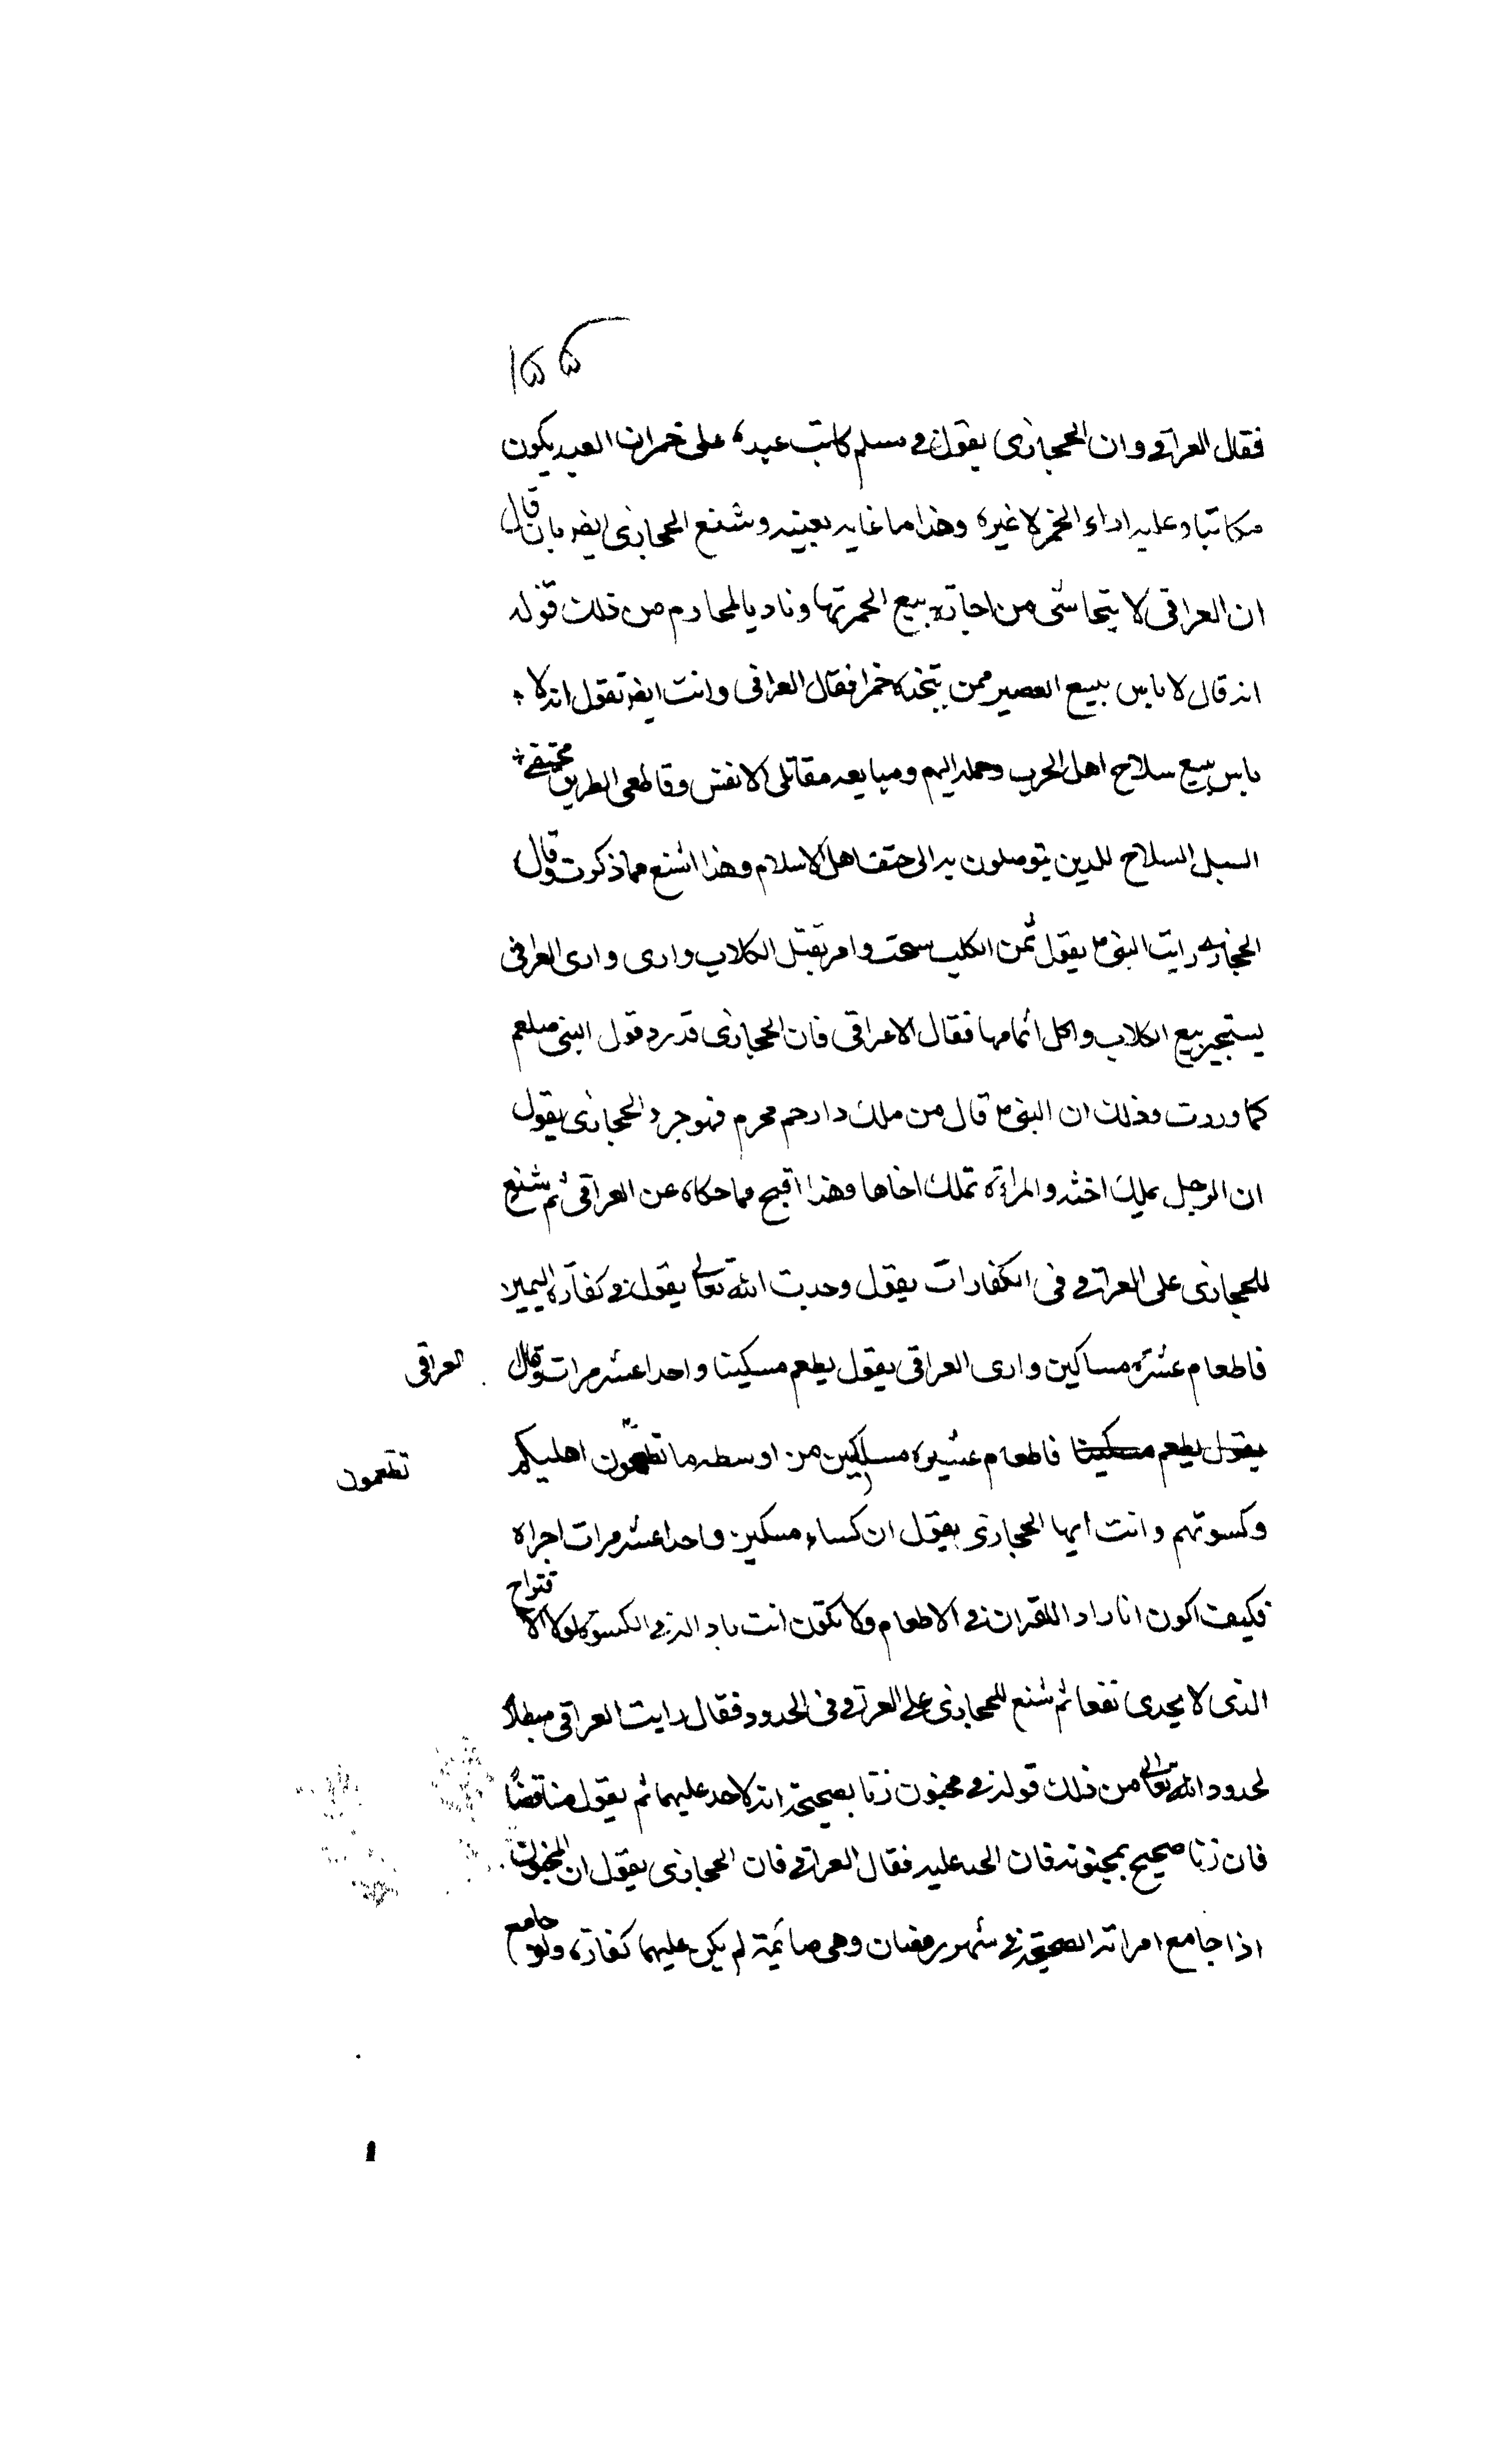 ١٥٥
فقال العراقى وان الحجازى يقول فى مسلم كاتب عبده على خمران العبد يكون
مكاتبا وعليه اداء الخمر لا غيره وهذا ما غابه بعينه وشنع الحجازى ايضه بان قال
ان العراقى لا يتحاشى من اجازة بيع الخمر تها ونا ديا لمحارم من ذلك قوله
انه قال لا باس ببيع العصير ممن يتخذه خمرا فقال العراقى وانت ايضه تقول انه لا
باس ببيع سلاح اهل الحرب وحمله اليهم ومبايعه مقاتلى الانفس وقاطعى الطريق مخيفى
السبل السلاح للدين يتوصلون به الى حتف اهل الاسلام وهذا اشنع مما ذكرت وقال
الحجازى رايت النبى ع يقول ثمن الكلب سحت وامر بقتل الكلاب وارى وارى العراقى
يستجيز بيع الكلاب واكل اثمامها فقال الاعراقى فان الحجازى قد رد قول النبى صلعم
كما وردت وذلك ان النبى ع قال من ملك دا رحم محرم فهو حر والحجازى يقول
ان الرجل يملك اخته والمراءة تملك اخاها وهذا اقبح مما حكاه عن العراقى ثم شنع
للحجازى على العراقى فى الكفارات يقول وحدت الله تعالى يقول فى كفارة اليمين
فاطعام عشرة مساكين وارى العراقى يقول يطعم مسكينا واحدا عشر مرات وقال العراقى
يقول يطعم مسكينا فاطعام عشرة مساكين من اوسط ما تطعمون اهليكم تطعمون
وكسوتهم وانت ايها الحجازى يقول ان كساء مسكين واحدا عشر مرات اجراه
فكيف اكون انا راد اللقران فى الاطعام ولا تكون انت باد اله فى الكسوة لولا الاقتراح
الذى لا يجدى نفعا ثم شنع للحجازى على العراقى فى الحدود فقال رايت العراقى مبطلا
لحدود الله تعالى من ذلك قوله فى مجنون زنا بصحيحة انه لا حد عليهما ثم يقول مناقضًا
فان زنا صحيح بمجنونه فان الحد عليه فقال العراقى فان الحجازى يقول ان المجنون
اذا جامع امراته الصحيحة فى شهر رمضان وهى صائمة لم يكن عليهما كفارة ولو جامع